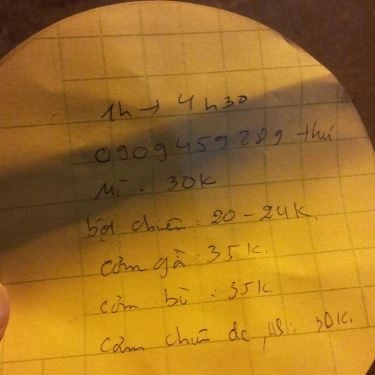 1h → 4h30
0909459289 thuí
Mì: 30K
bột chiên: 20-24K.
cơm gà: 35K.
cơm bò: 35K
cơm chiên dc, 30K.